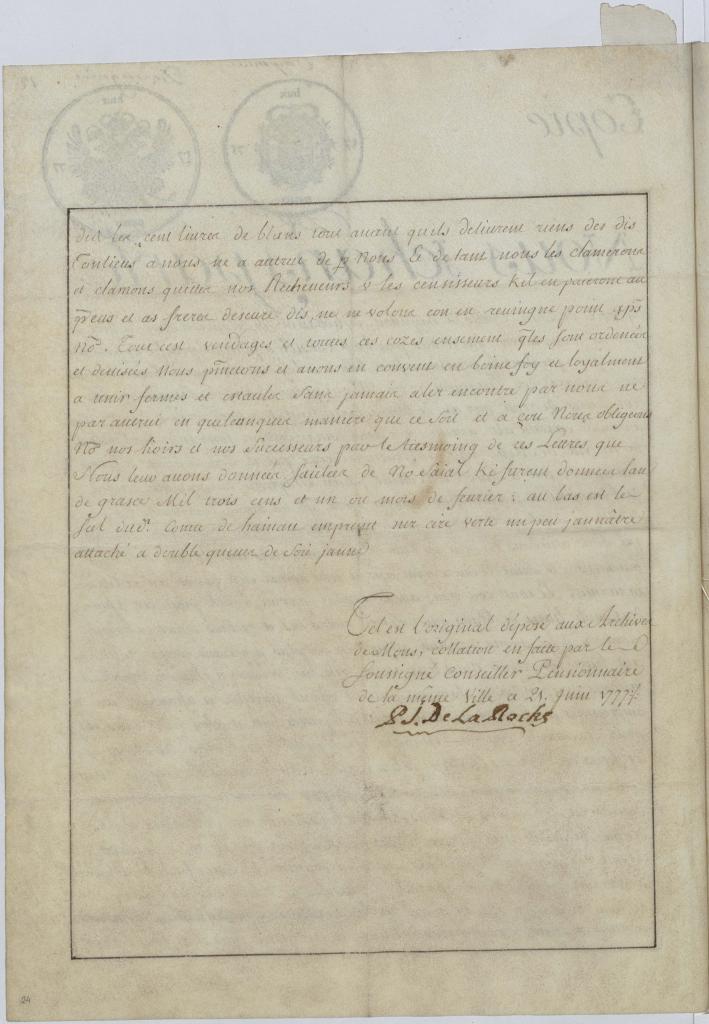 dis les cent livres de blans tout avant quils delivrent riens des dis
Tonlieus a nous ne a autrui de p Nous Et de tant nous les clamerons
et clamons quitte nos Recheveurs v les censisseurs kil en paieront au
et as freres deseure dis, ne ne volons con en reuingne point
No. Tout cest vendages et toutes ces cozes ensement qles sont ordenées
et deuisées Nous pmetons et auons en convent en boine foy et loyalment
a tenir fermes et estaules sans jamais aler encontre par nous ne
par autrui en quelconques manière que ce soit et à çou Nous obligeons
No nos hoirs et nos Successeurs par le tiesmoing de ces Lettres, que
Nous leur auons données saielées de No Saial Ki furent données lan
de grasce Mil trois cens et un ou mois de feurier : au bas est le
scel dudt. Comte de hainau empreint sur cire verte un peu jaunâtre
attaché a double queue de Soie jaune
Tel est l'original déposé aux Archives
de Mons, collation en faite par le
soussigné Conseiller Pensionnaire
de la même Ville ce 21. Juin 1777.
P. J. De La Roche
24
Copie